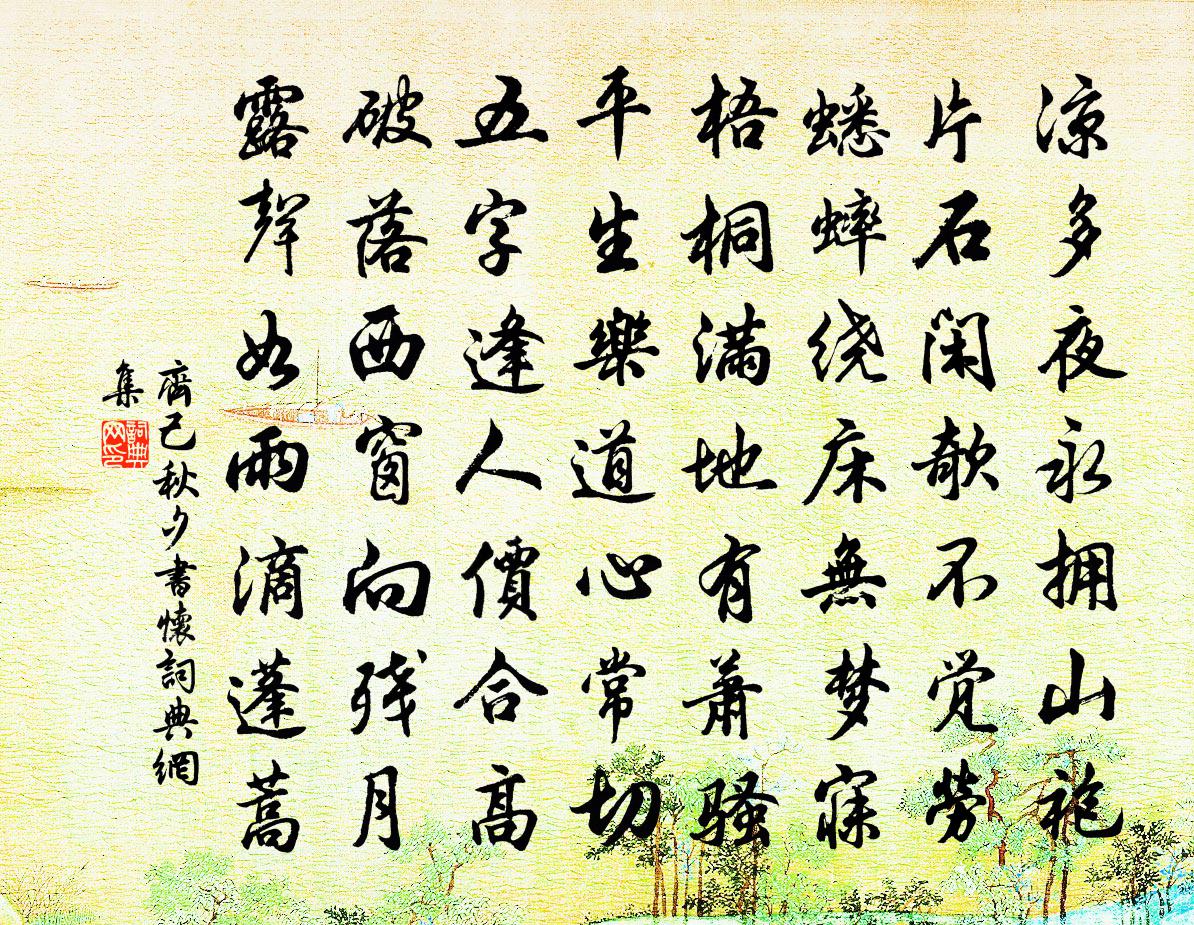 凉多夜永拥山袍
片石闲欹不觉劳
蟋蟀绕床無梦寐
梧桐满地有萧骚
平生樂道心常切
五字逢人價合高
破落西窗向残月
露聲如雨滴蓬蒿
齊己秋夕書懷詞典網
集
詞典
网印